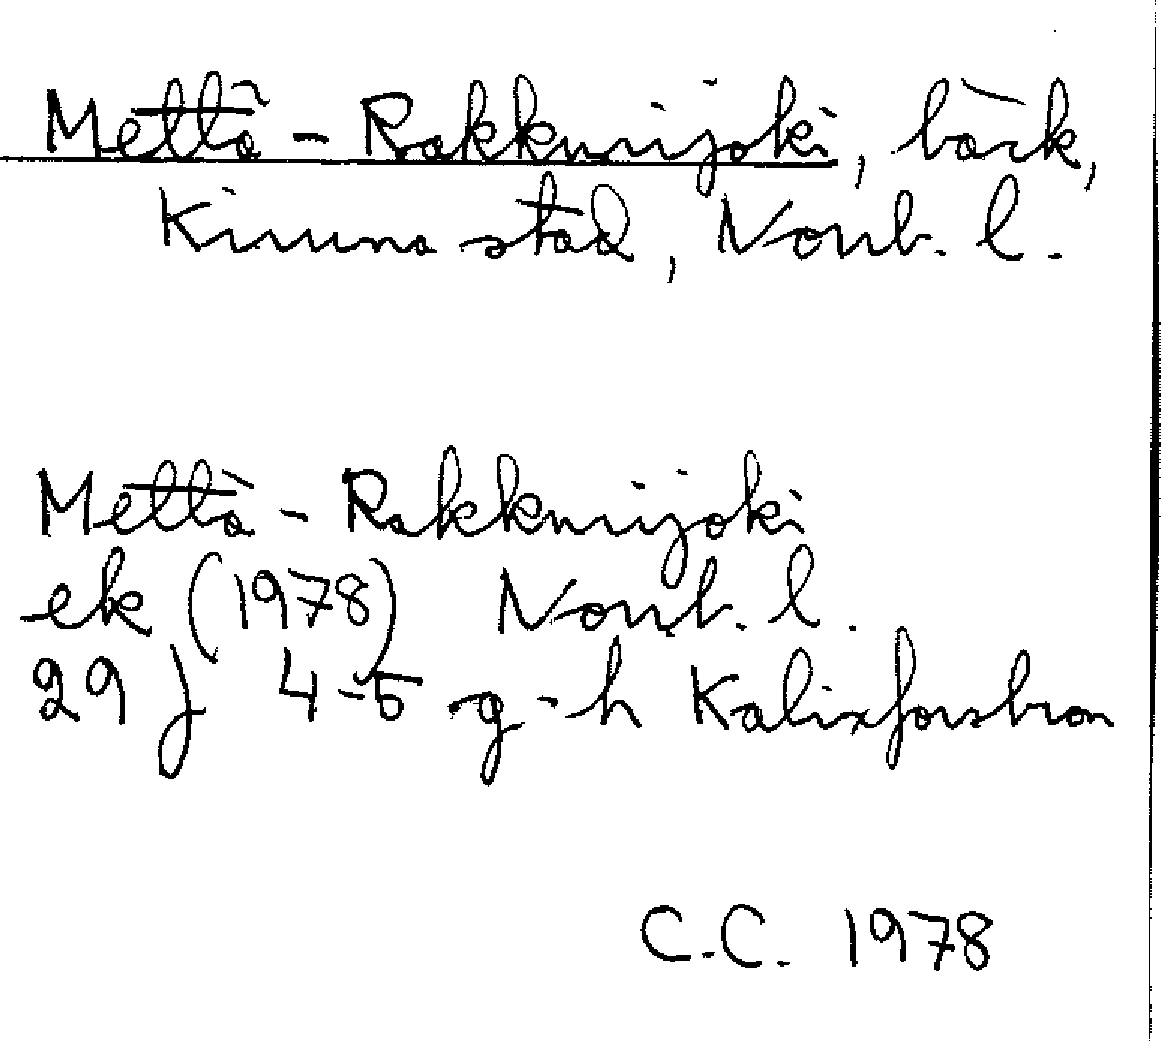 Mettä-Rakkurijoki, bäck,
Kiruna stad, Norrb. l.
Mettä-Rakkurijoki
ek (1978) Norrb. l.
29 J 4-5 g-h Kalixforsbron
C.C. 1978